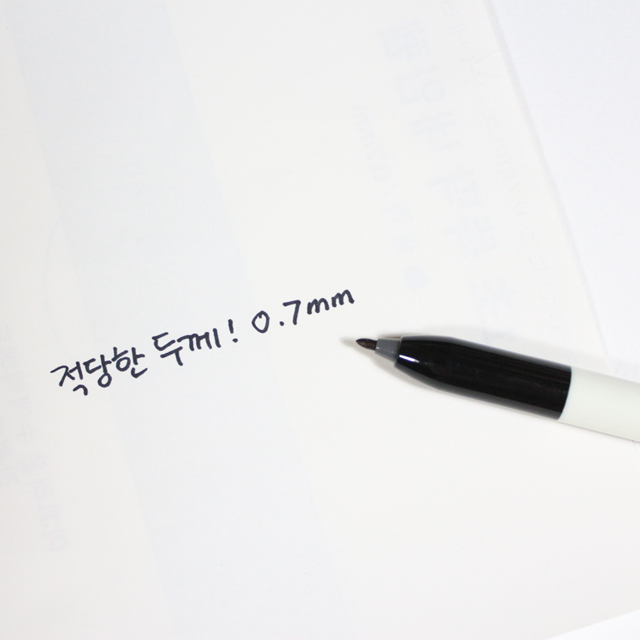 적당한 두께! 0.7mm